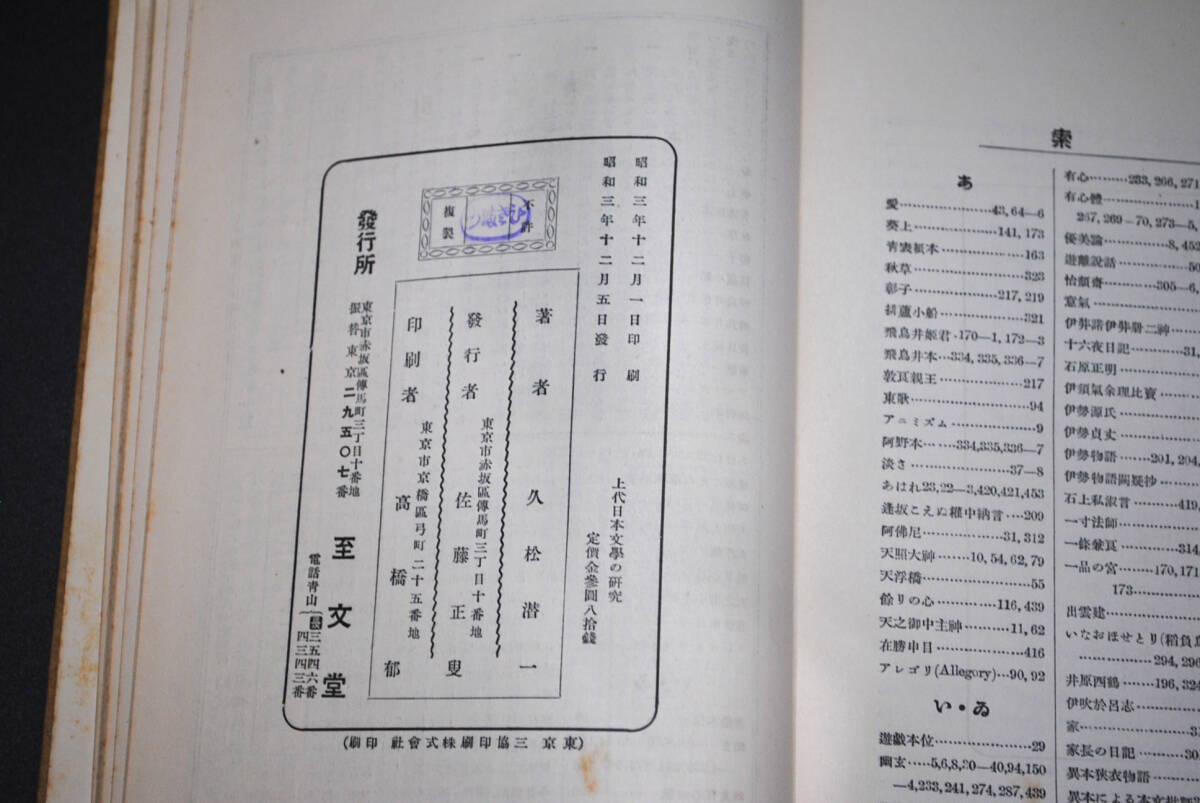 昭和三年十二月一日印刷
昭和三年十二月五日發行
不許
複製
上代日本文學の研究
定價金參圓八拾錢
著者 久松潜一
東京市赤坂區傳馬町三丁目十番地
發行者 佐藤正叟
東京市京橋區弓町二十五番地
印刷者 高橋郁
發行所
東京市赤坂區傳馬町三丁目十番地
振替東京二九五〇七番
至文堂
電話青山
三五四六番
四三四三番
(東京 三協印刷株式會社 印刷)
索
あ
愛………43,64—6
葵上………141,173
青表紙本………163
秋草………323
彰子………217,219
排蘆小船………321
飛鳥井姬君·170—1,172—3
飛鳥井本…334,335,336—7
敦實親王………217
東歌………94
アニミズム………9
阿野本……334,335,336—7
淡さ………37—8
あはれ23,22—3,420,421,453
逢坂こえぬ權中納言…209
阿佛尼………31,312
天照大神……10,54,62,79
天浮橋………55
餘りの心………116,439
天之御中主神……11,62
在滿申目………416
アレゴリ(Allegory)…90,92
い・ゐ
遊戯本位………29
幽玄……5,6,8,30—40,94,150
—4,233,241,274,287,439
有心………233,266,271
有心體………1
267,269—70,273—5,
優美論………8,452
遊離說話………50
怡顏齋………305—6,
意氣
伊弉諾伊弉册二神……
十六夜日記………31,
石原正明………
伊須氣余理比賣………
伊勢源氏………
伊勢貞丈………
伊勢物語……201,204,
伊勢物語闕疑抄……
石上私淑言………419,
一寸法師………
一條兼良………314,
一品の宮………170,171
173………
出雲建………
いなおほせとり(稻負鳥
………294,296
井原西鶴……196,324
伊吹於呂志………
家………3
家長の日記………30
異本狹衣物語……
異本による本文批評